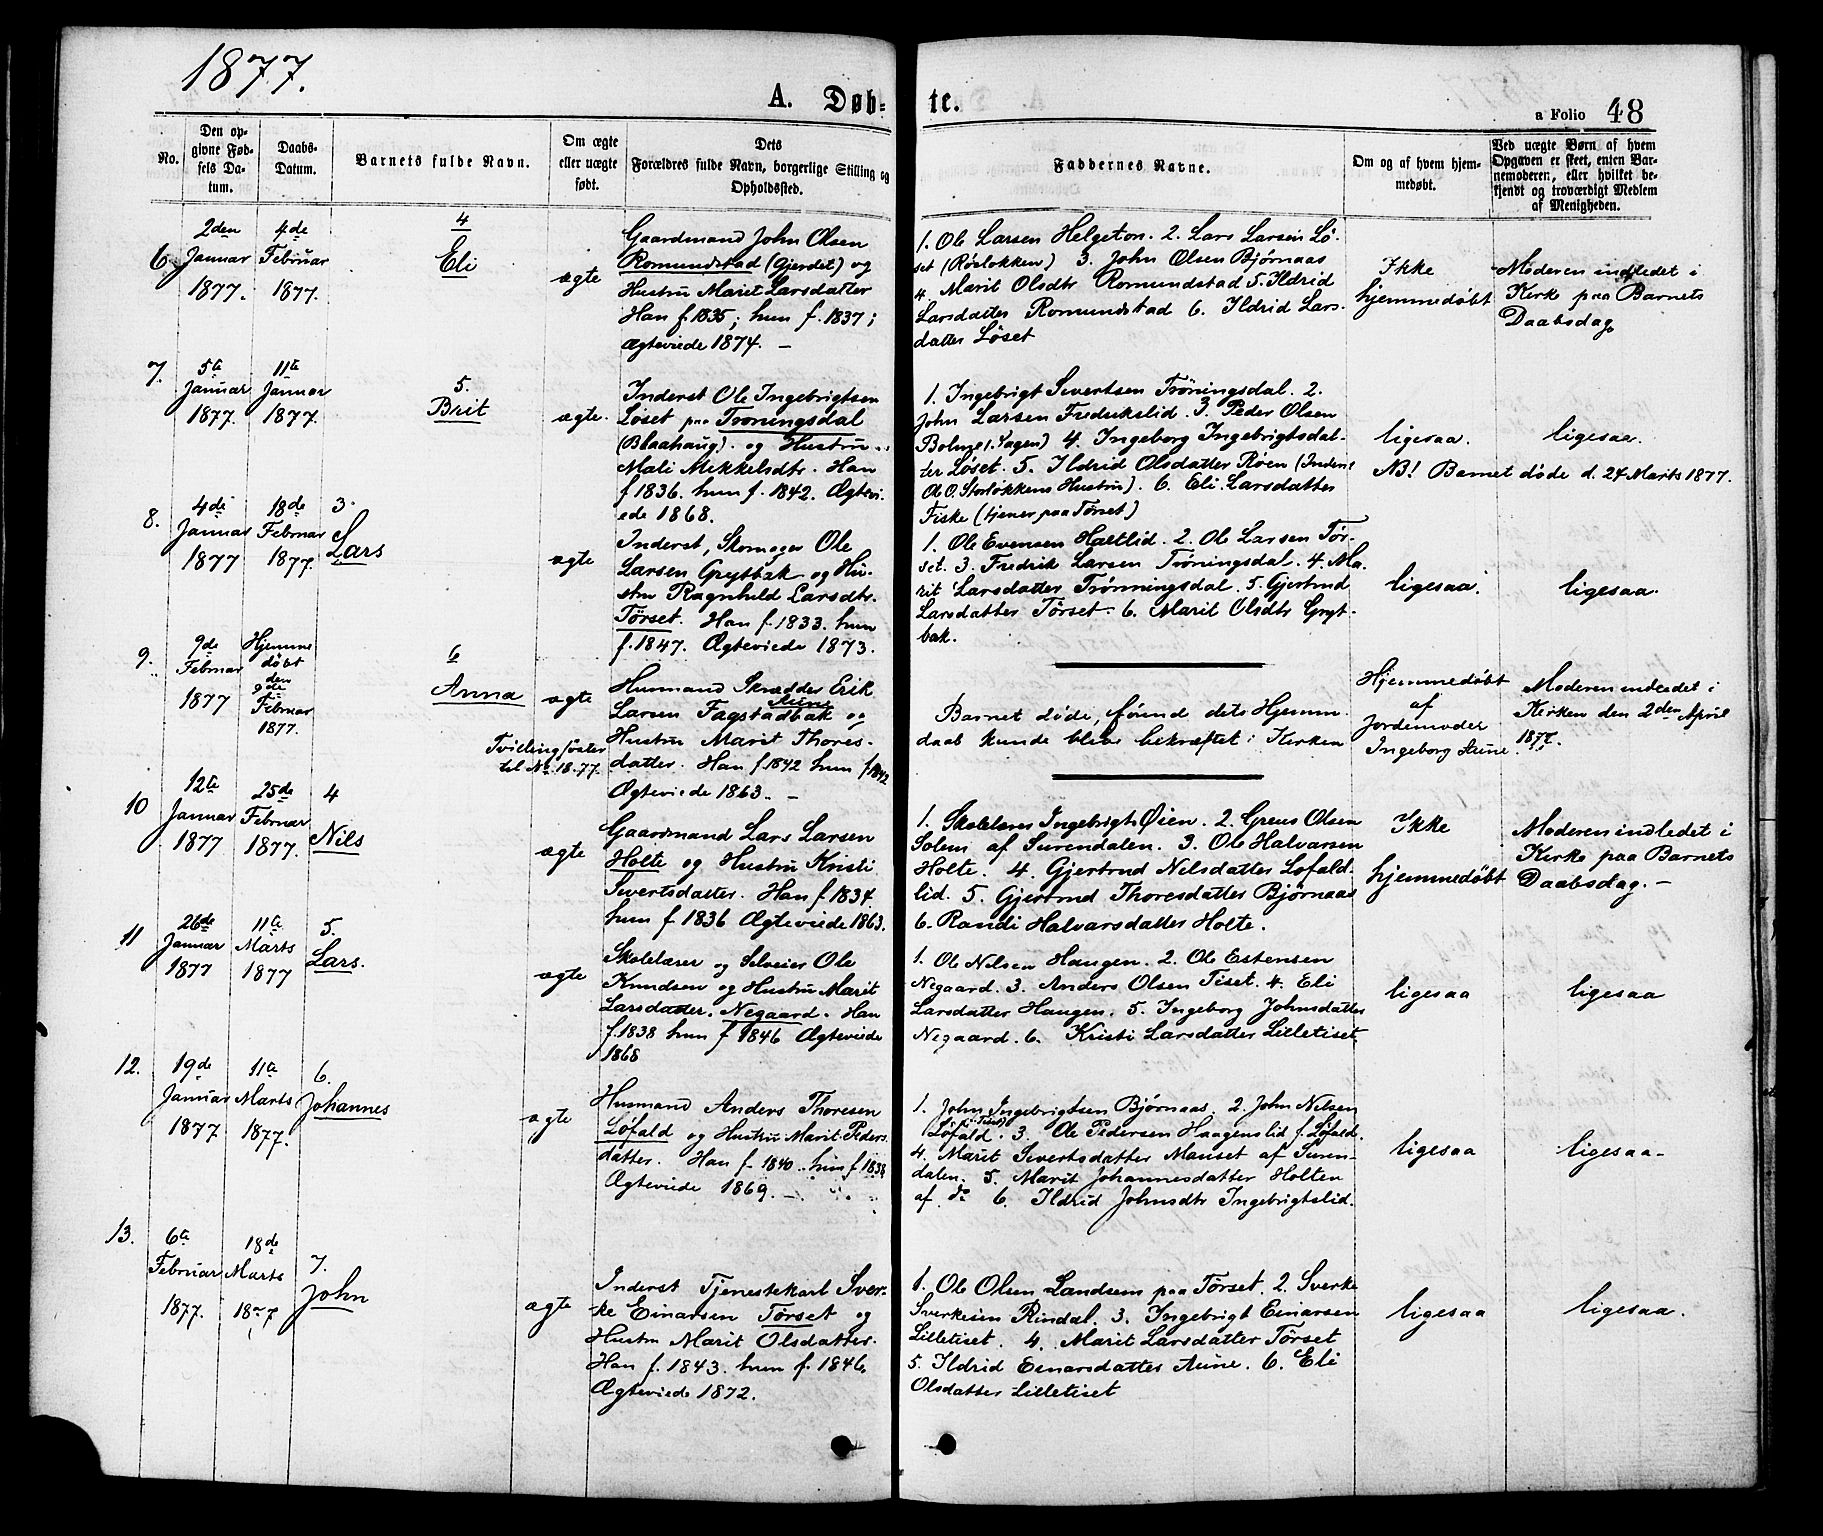 1877.
A. Døb-
te.
a Folio 48
No.
Den op-
givne Fød-
sels Da-
tum.
Daabs-
Datum.
Barnets fulde Navn.
Om ægte
eller uægte
født.
Dets
Forældres fulde Navn, borgerlige Stilling og
Opholdssted.
Faddernes Navne.
Om og af hvem hjem-
medøbt.
Ved uægte Børn af hvem
Opgaven er skeet, enten Bar-
nemoderen, eller hvilket be-
kjendt og troværdigt Medlem
af Menigheden.
6
2den
Januar
1877.
4de
Februar
1877.
4
Eli
ægte
Gaardmand John Olsen
Romundstad (Gjerdet) og
Hustru Marit Larsdatter
Han f. 1835; hun f. 1837;
Ægteviede 1874. –
1. Ole Larsen Helgeton. 2. Lars Larsen Lø-
set (Røsløkken) 3. John Olsen Bjørnaas
4. Marit Olsdtr Romundstad 5. Ildrid
Larsdatter Romundstad 6. Ildrid Lars-
datter Løset
Ikke
hjemmedøbt
Moderen indledet i
Kirke paa Barnets
Daabsdag
7.
5te
Januar
1877.
11te
Januar
1877.
5.
Brit
ægte.
Inderst Ole Ingebrigtsen
Løset paa Trøningsdal
(Blaahaug). og Hustru
Mali Mikkelsdtr. Han
f 1836. hun f. 1842. Ægtevi-
ede 1868.
1. Ingebrigt Sivertsen Trøningsdal. 2.
John Larsen Fredrikslid. 3. Peder Olsen
Bolme (. Sagen) 4. Ingeborg Ingebrigtsdat-
ter Løset. 5. Ildrid Olsdatter Røen (Inders
Ole O. Storløkkens Hustru). 6. Eli Larsdatter
Fiske (tjener paa Tørset)
ligesaa.
ligesaa.
NB! Barnet døde d. 24 Marts 1877.
8.
4de
Januar
1877
18de
Februar
1877.
3.
Lars
ægte
Inderst, Skomager Ole
Larsen Grytbak og Hu-
stru Ragnhild Larsdtr.
Tørset. Han f. 1833. hun
f. 1847. Ægteviede 1873.
1. Ole Evensen Haltlid. 2. Ole Larsen Tør-
set. 3. Fredrik Larsen Trøningsdal. 4. Ma-
rit Larsdatter Trønningsdal. 5. Gjertrud
Larsdatter Tørset. 6. Marit Olsdtr Gryt-
bak.
ligesaa.
ligesaa.
9.
9de
Februar
1877
Hjemme
døbt
den
9de
Februar
1877.
6
Anna
Tvillingsøster
til No 18-77.
ægte
Husmand Skrædder Erik
Aune
Larsen Fagstadbak og
Hustru Marit Thores-
datter. Han f. 1842 hun f 1842
Ægteviede 1863. –
Barnet døde, førend dets Hjemme-
daab kunde blive bekræftet i Kirken
Hjemmedøbt
af
Jordemoder
Ingeborg Aune
Moderen indledet i
Kirken den 2den April
1877.
10
12te
Januar
1877
25de
Februar
1877.
4
Nils
ægte
Gaardmand Lars Larsen
Holte og Hustru Kristi
Sivertsdatter. Han f. 1834
hun f 1836 Ægteviede 1863.
1. Skolelærer Ingebrigt Øien. 2. Greus Olsen
Solem af Surendalen. 3. Ole Halvarsen
Holte. 4. Gjertrud Nilsdatter Løfald-
lid. 5. Gjertrud Thoresdatter Bjørnaas
6. Randi Halvarsdatter Holte.
Ikke
hjemmedøbt
Moderen indledet i
Kirke paa Barnets
Daabsdag. –
11
26de
Januar
1877
11te
Marts
1877
5.
Lars.
ægte
Skolelærer og Selveier Ole
Knudsen og Hustru Marit
Larsdatter. Negaard. Han
f. 1838 hun f 1846 Ægteviede
1868
1. Ole Nilsen Haugen. 2. Ole Estensen
Negaard. 3. Anders Olsen Tiset. 4. Eli
Larsdatter Haugen. 5. Ingeborg Johnsdatter
Negaard. 6. Kristi Larsdatter Lilletiset.
ligesaa
ligesaa
12.
19de
Januar
1877
11te
Marts
1877.
6.
Johannes
ægte
Husmand Anders Thoresen
Løfald og Hustru Marit Peders-
datter. Han f. 1840. hun f 1838
Ægteviede 1869. –
1. John Ingebrigtsen Bjørnaas. 2. John Nilsen
Løfald. 3. Ole Pedersen Haagenslid f. Løfald.
4. Marit Sivertsdatter Mauset af Suren-
dalen. 5. Marit Johannesdatter Holten
af do 6. Ildrid Johnsdtr Ingebrigtslid.
ligesaa
ligesaa.
13.
6te
Februar
1877.
18de
Marts
1877
7.
John
ægte
Inderst Tjenestekarl Sver-
ke Einarsen Tørset og
Hustru Marit Olsdatter.
Han f. 1843. hun f. 1846
Ægteviede 1872.
1. Ole Olsen Landsem paa Tørset. 2. Sverke
Sverkesen Rindal. 3. Ingebrigt Einarsen
Lilletiset. 4. Marit Larsdatter Tørset
5. Ildrid Einarsdatter Aune. 6. Eli
Olsdatter Lilletiset
ligesaa
ligesaa.